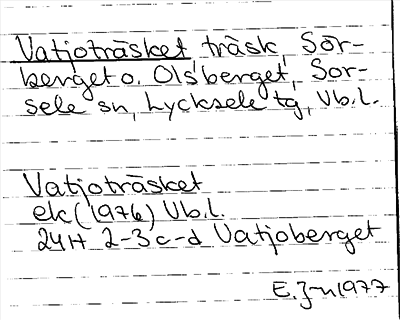 Vatjoträsket träsk, Sör-
berget o. Olsberget, Sor-
sele sn, Lycksele tg, Vb.l.
Vatjoträsket
ek (1976) Vb.l.
24H 2-3 c-d Vatjoberget
E. J-n 1977